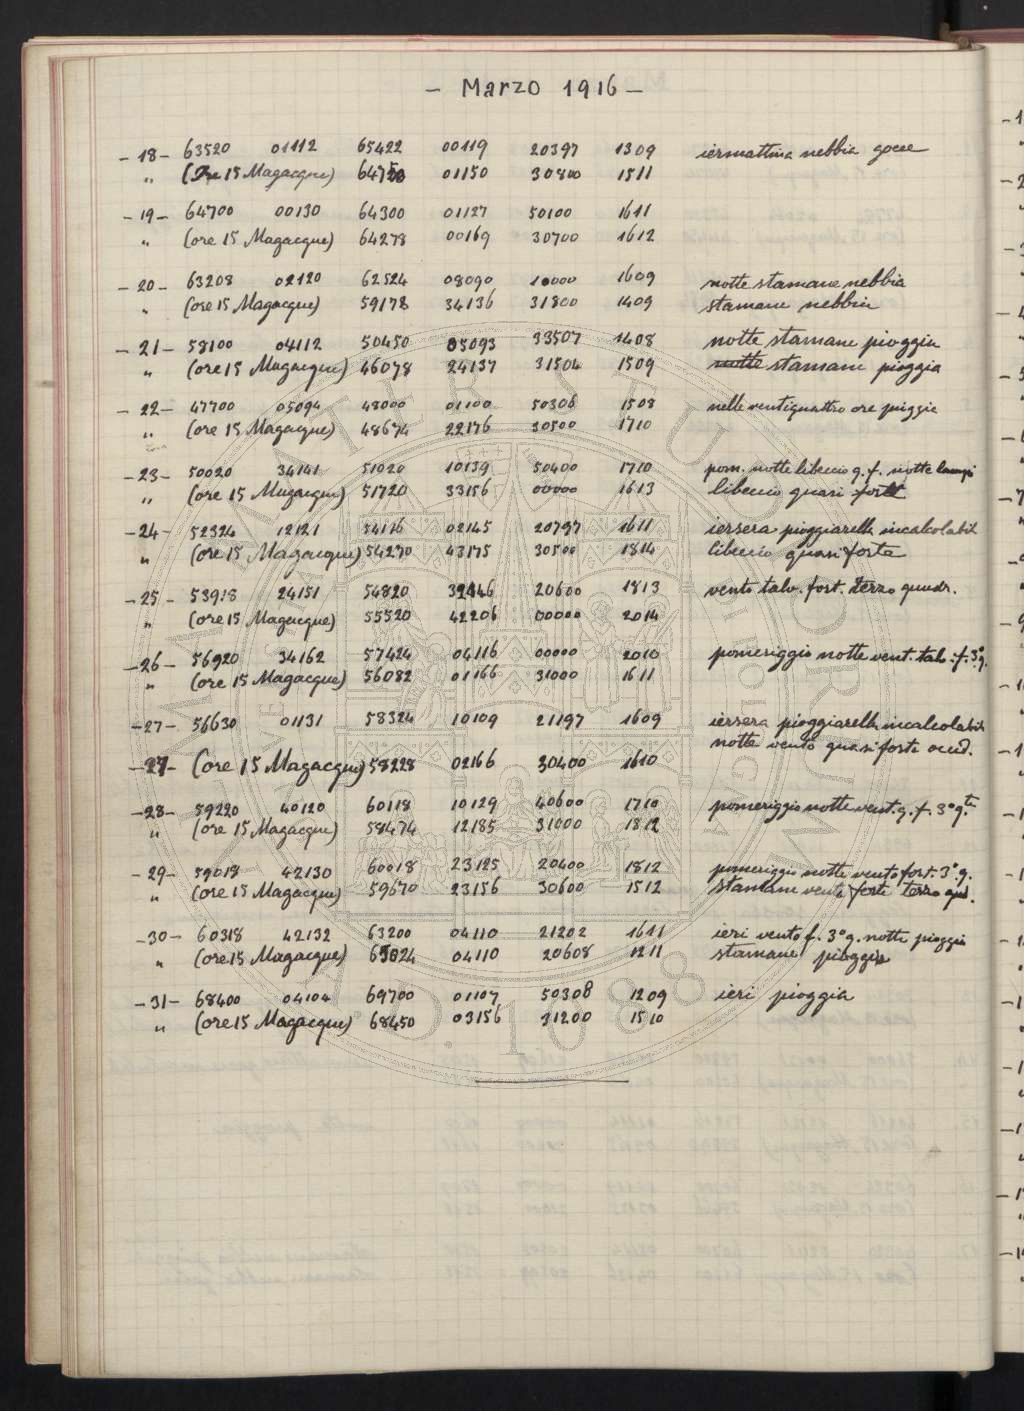 - Marzo 1916 -
- 18 - 63520 01112 65422 00119 20397 1309 iermattina nebbia gocce
" (Ore 15 Magacque) 01150 30800 1511
- 19 - 64700 00130 64300 01127 50100 1611
" (ore 15 Magacque) 64278 00169 30700 1612
- 20 - 63208 02120 62524 08090 10000 1609 notte stamane nebbia
" (ore 15 Magacque) 59178 34136 31800 1409 stamane nebbia
- 21 - 58100 04112 50450 05093 33507 1408 notte stamane pioggia
" (ore 15 Magacque) 46078 24137 31504 1509 notte stamane pioggia
- 22 - 47700 05094 48000 01100 50308 1508 nelle ventiquattro ore pioggie
" (ore 15 Magacque) 48674 22176 30500 1710
- 23 - 50020 34141 51020 10139 50400 1710 pom. notte libeccio q. f. notte lampi
" (ore 15 Magacque) 51720 33156 00000 1613 libeccio quasi forte
- 24 - 52324 12121 54116 02145 20797 1611 iersera pioggiarella incalcolabil
" (ore 15 Magacque) 54270 43175 30500 1814 libeccio quasi forte
- 25 - 53918 24151 54820 20600 1813 vento talv. fort. terzo quadr.
" (ore 15 Magacque) 55520 42206 00000 2014
- 26 - 56920 34162 57424 04116 00000 2010 pomeriggio notte vent. talv. f. 3° q.
" (ore 15 Magacque) 56082 01166 31000 1611
- 27 - 56630 01131 58324 10109 21197 1609 iersera pioggiarella incalcolabil
notte vento quasi forte occid.
- 27 - (ore 15 Magacque) 58228 02166 30400 1610
- 28 - 59220 40120 60118 10129 40600 1710 pomeriggio notte vent. q. f. 3° q.te
" (ore 15 Magacque) 58474 12185 31000 1812
- 29 - 59018 42130 60018 23125 20400 1812 pomeriggio notte vento fort. 3° q.
" (ore 15 Magacque) 59670 23156 30600 1512 stamane vento forte terzo qud.
- 30 - 60318 42132 63200 04110 21202 1611 ieri vento f. 3° q. notte pioggia
" (ore 15 Magacque) 04110 20608 1211 stamane pioggia
- 31 - 68400 04104 69700 01107 50308 1209 ieri pioggia
" (ore 15 Magacque) 68450 03156 31200 1510